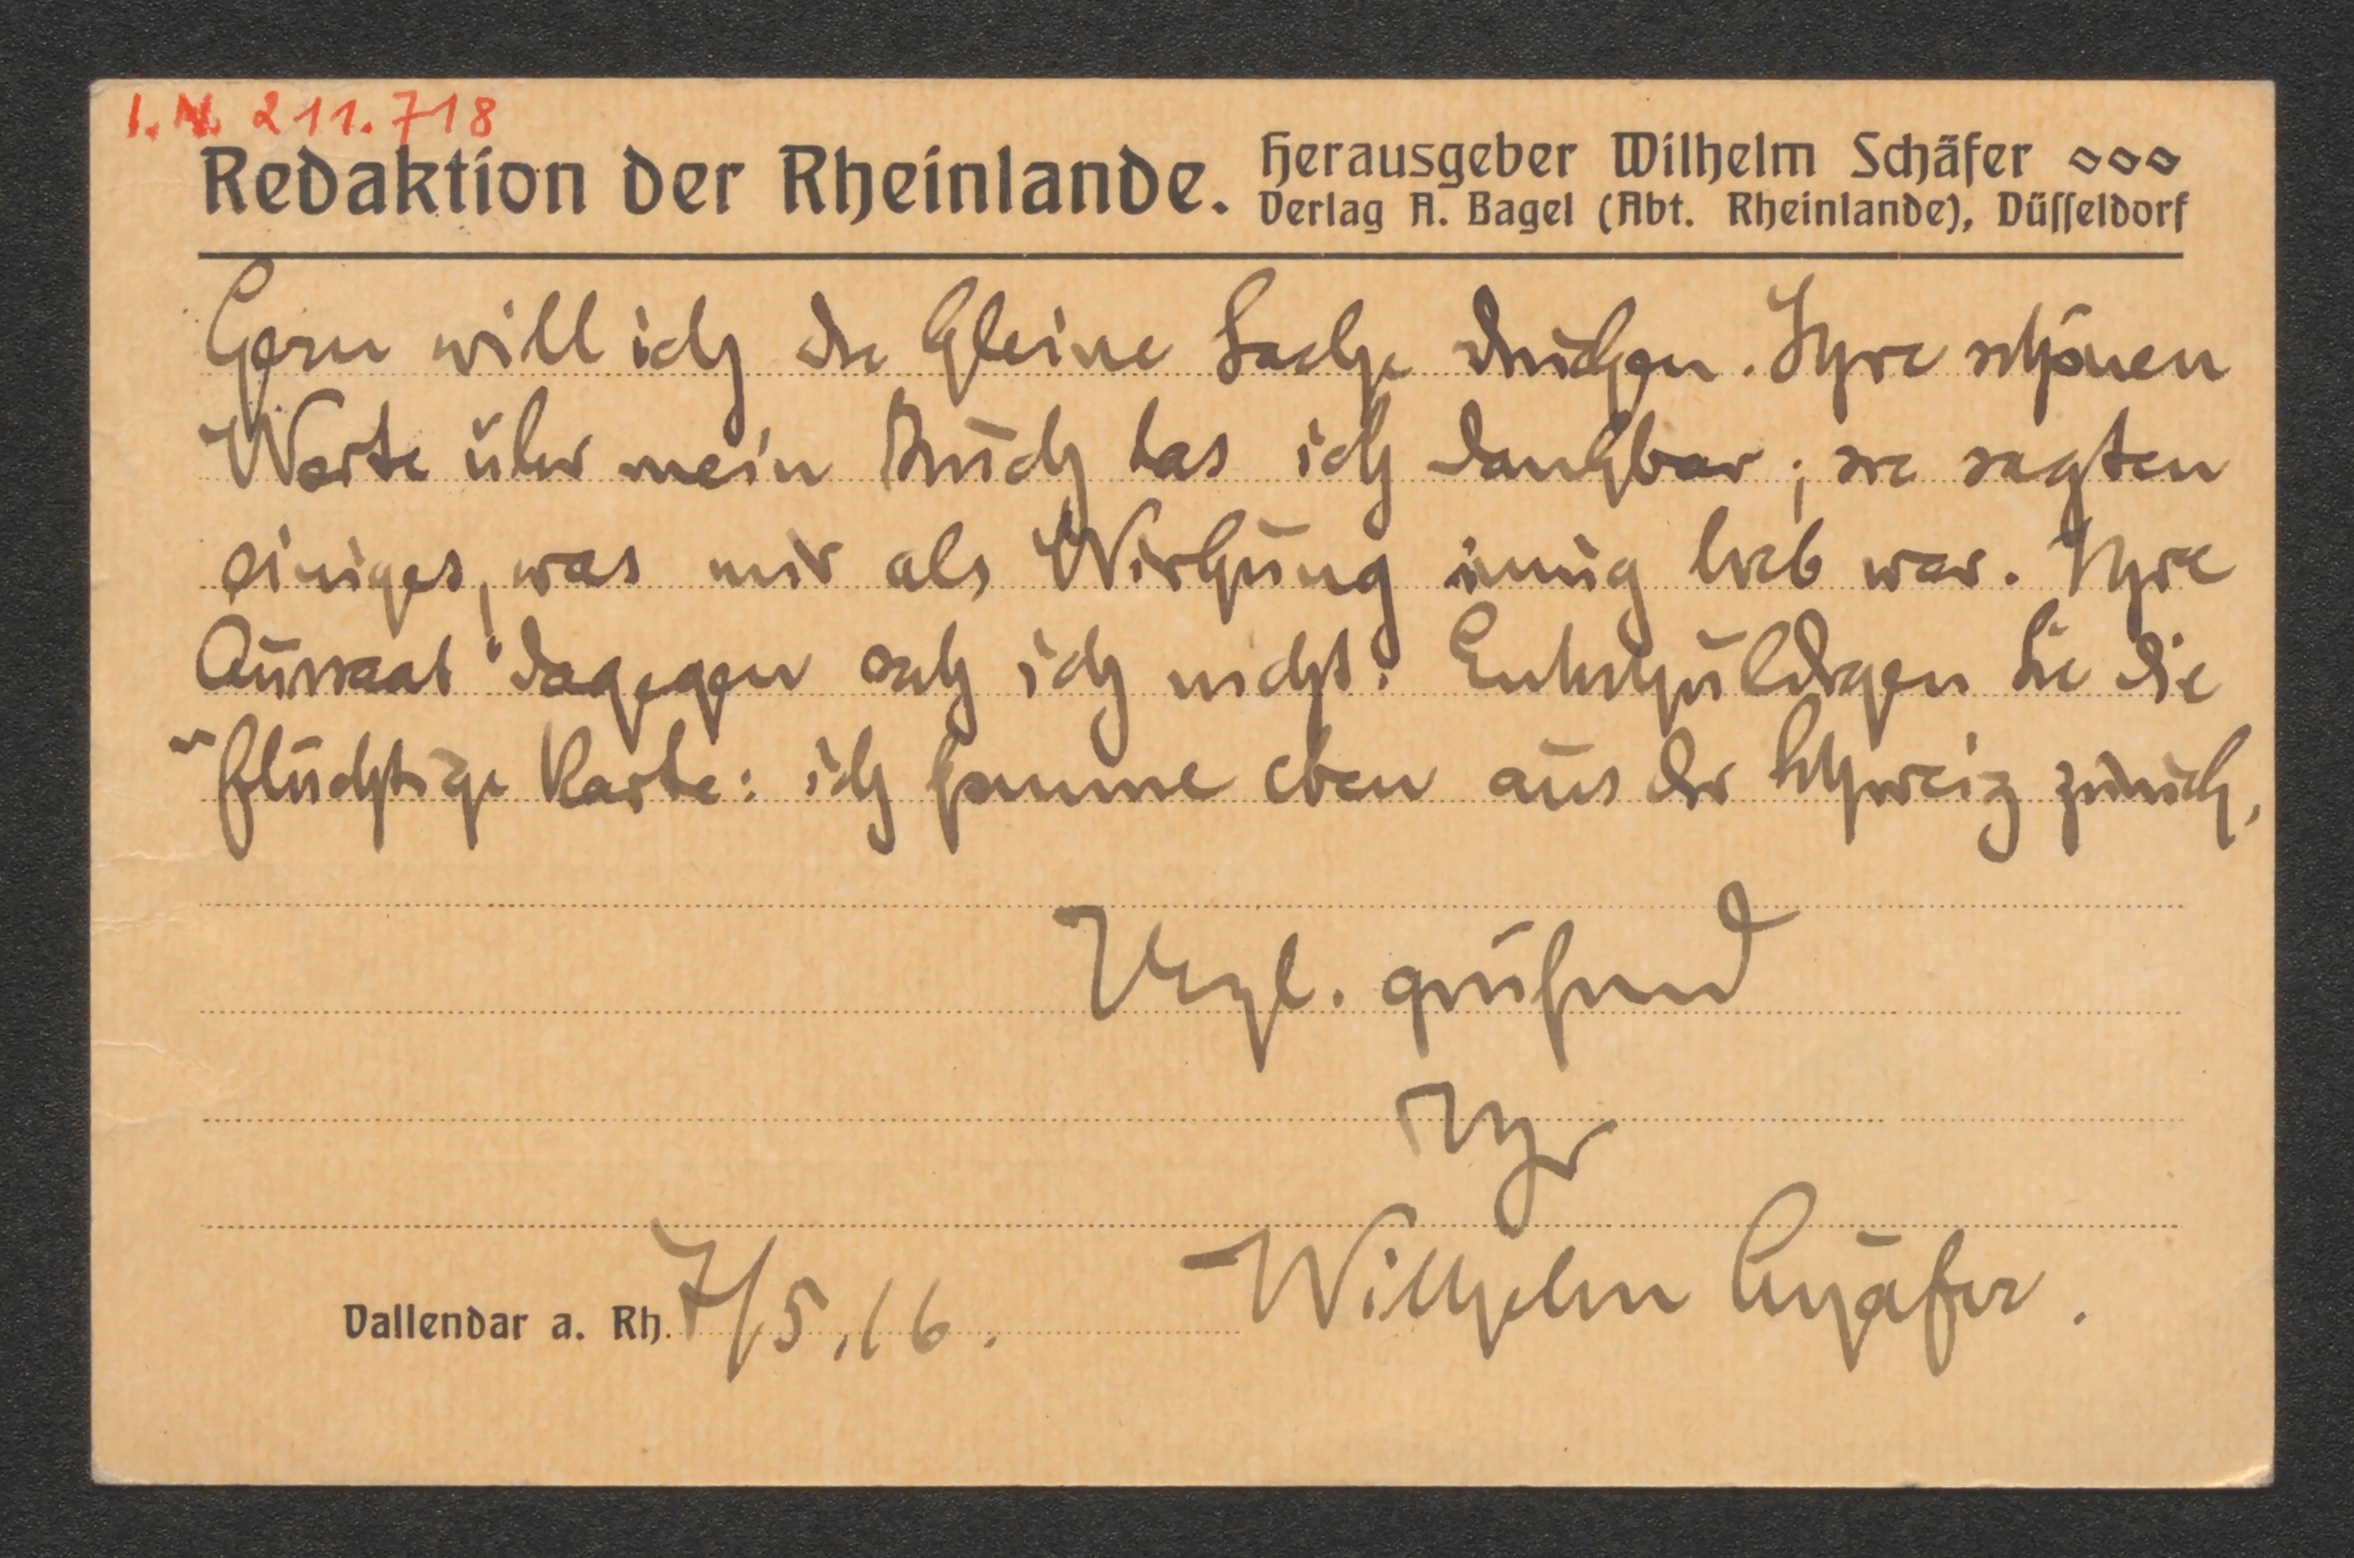 I.N. 211.718
Redaktion der Rheinlande.
Herausgeber Wilhelm Schäfer
Verlag A. Bagel (Abt. Rheinlande), Düsseldorf
Gern will ich die kleine Sache drucken. Ihre schönen
Worte über mein Buch las ich dankbar; sie sagten
einiges, was mir als Wirkung innig lieb war. Ihre
Aussaat dagegen sah ich nicht. Entschuldigen Sie die
flüchtige Karte: ich komme eben aus der Schweiz zurück.
Herzl. grüßend
Ihr
Wilhelm Schäfer.
Vallendar a. Rh. 7/5.16.